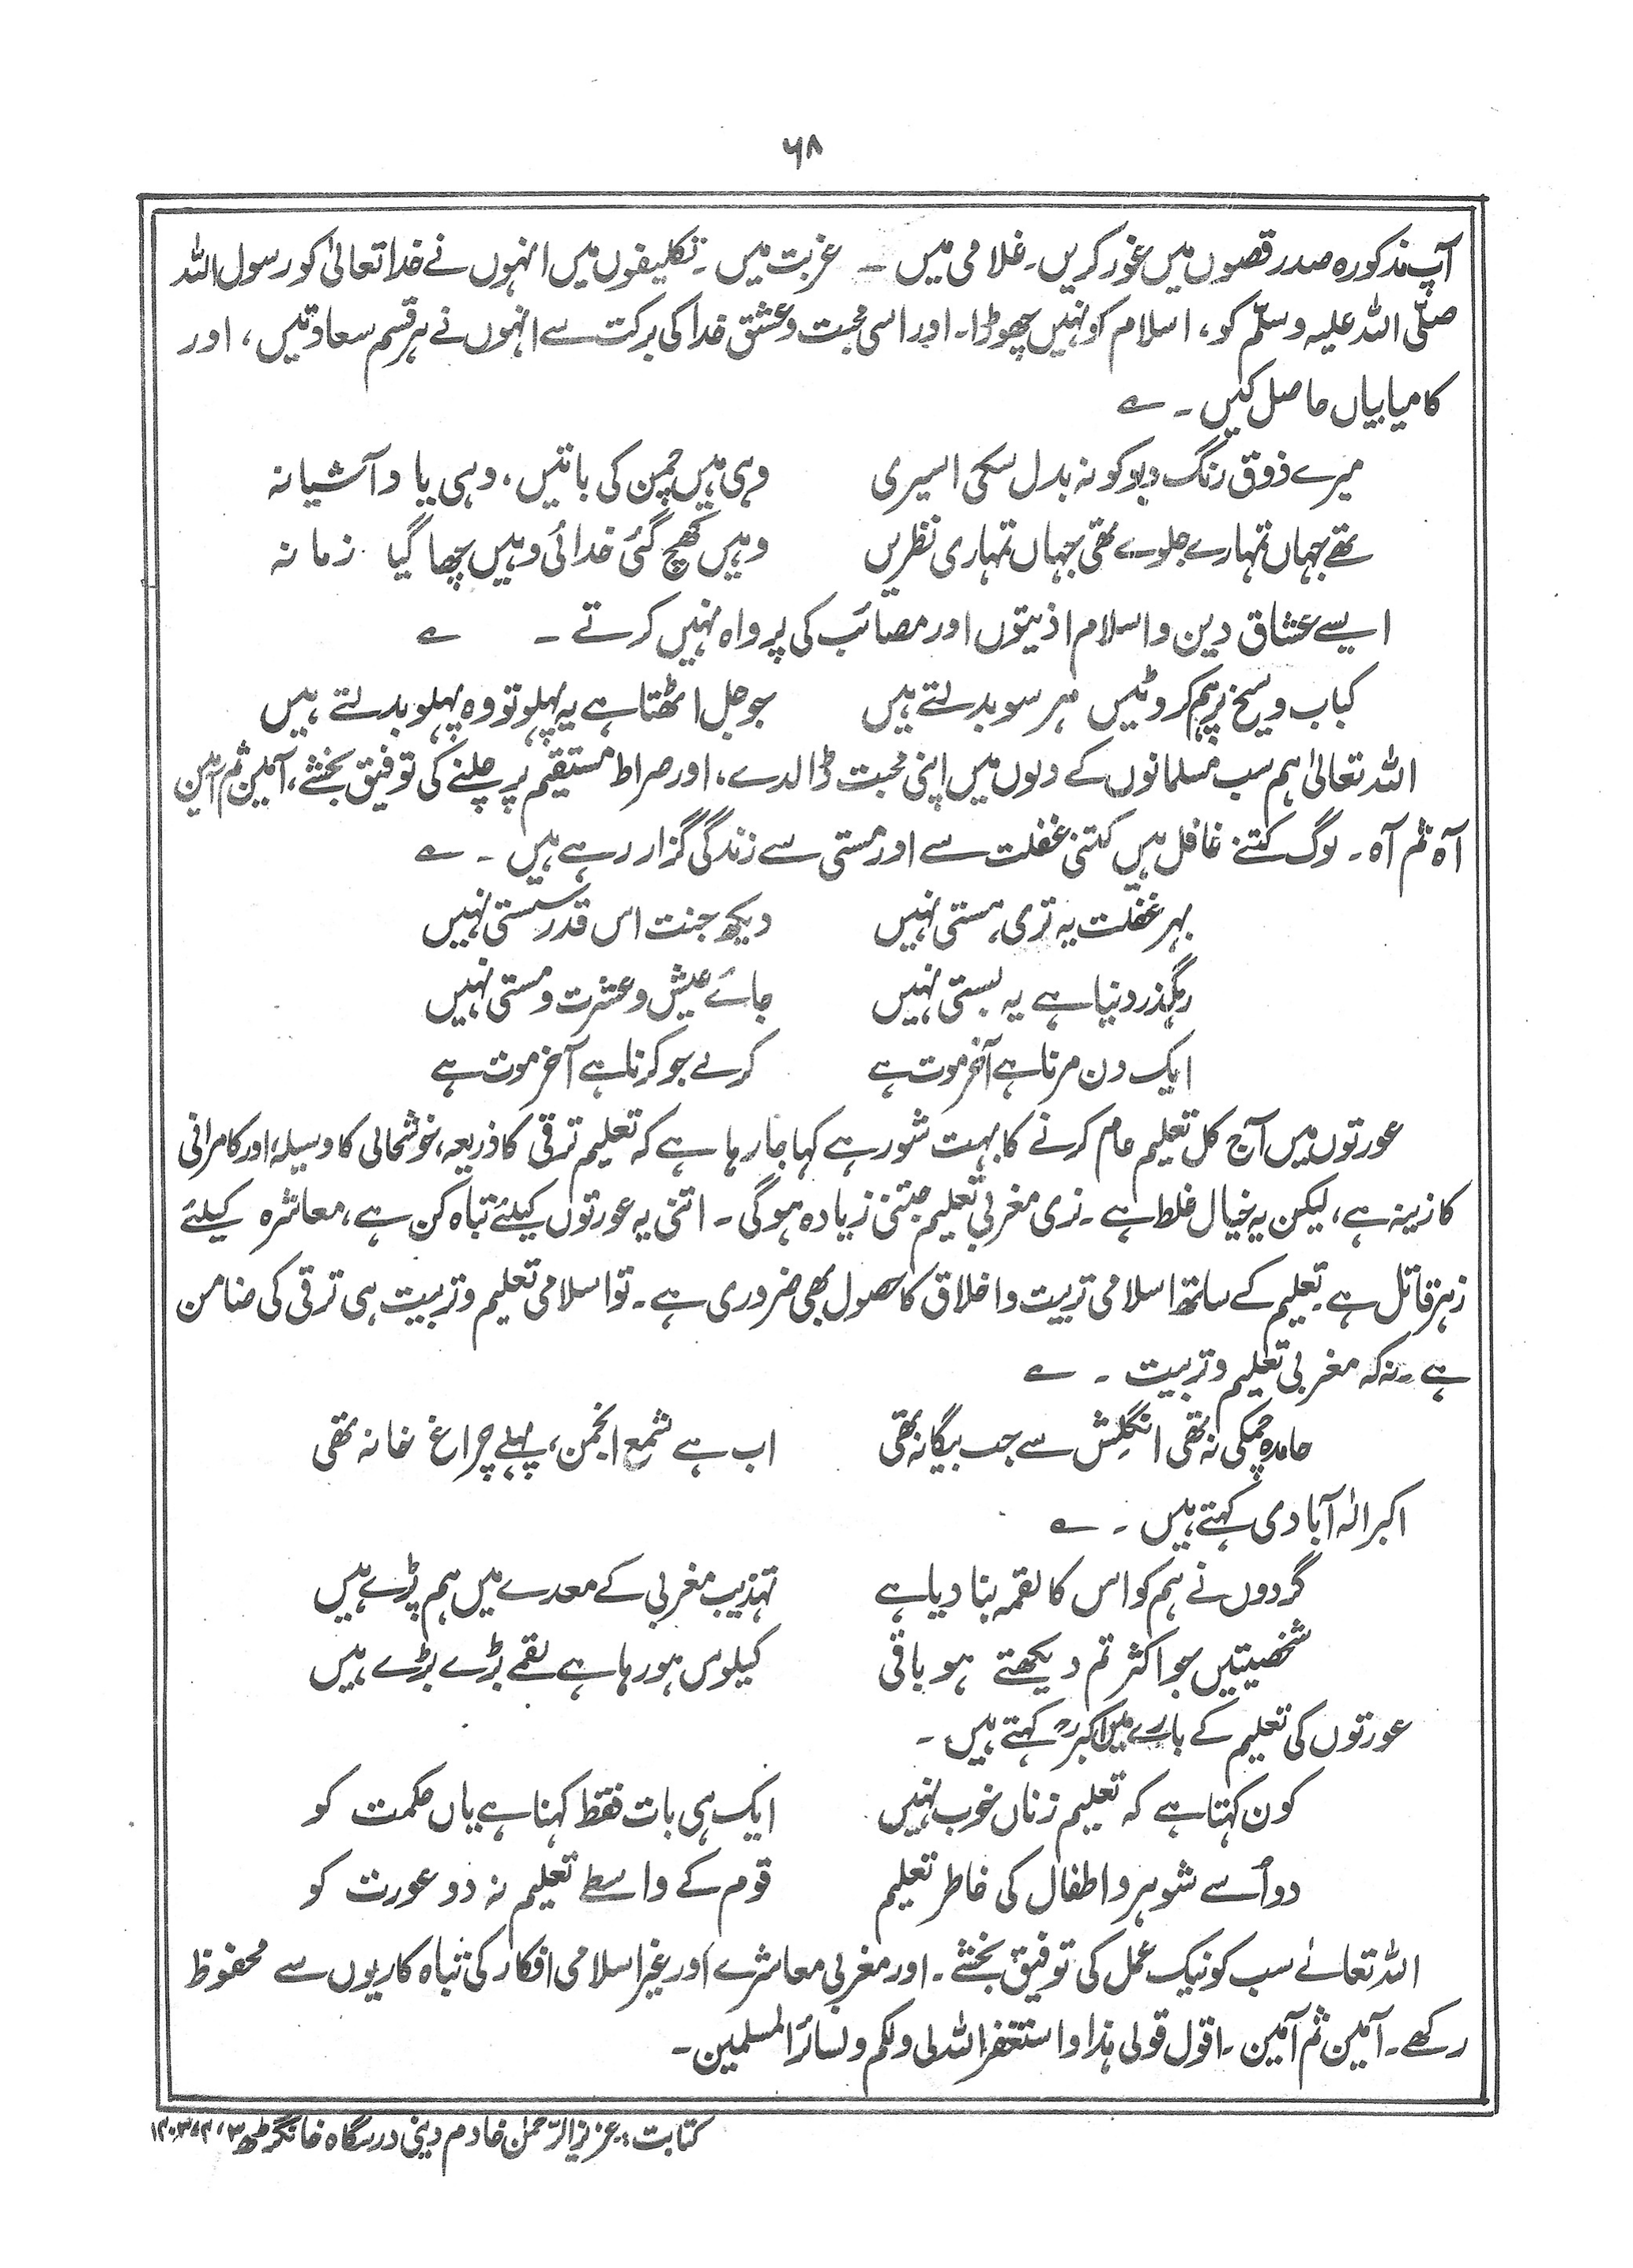 ۶۸
آپ مذکورہ صدر قصوں میں غور کریں۔ غلامی میں ۔ غربت میں ۔ تکلیفوں میں انہوں نے خدا تعالیٰ کو رسول اللہ
صلّی اللہ علیہ وسلّم کو، اسلام کو نہیں چھوڑا۔ اور اسی محبت و عشق خدا کی برکت سے انہوں نے ہر قسم سعادتیں، اور
کامیابیاں حاصل کیں ۔ ے
میرے ذوق رنگ وبو کو نہ بدل سکی اسیری وہی ہیں چمن کی باتیں، وہی یاد آشیانہ
تھے جہاں تمہارے جلوے تھی جہاں تمہاری نظریں وہیں کھچ گئی خدائی وہیں چھا گیا زمانہ
ایسے عشاق دین و اسلام اذیتوں اور مصائب کی پرواہ نہیں کرتے ۔ ے
کباب و سیخ پر ہم کروٹیں ہر سو بدلتے ہیں جو جل اٹھتا ہے یہ پہلو تو وہ پہلو بدلتے ہیں
اللہ تعالیٰ ہم سب مسلمانوں کے دلوں میں اپنی محبت ڈالدے، اور صراط مستقیم پر چلنے کی توفیق بخشے، آمین ثم آمین
آہ ثم آہ ۔ لوگ کتنے غافل ہیں کتنی غفلت سے اور مستی سے زندگی گزار رہے ہیں ۔ ے
بہر غفلت یہ تری ہستی نہیں دیکھ جنت اس قدر سستی نہیں
رہگذر دنیا ہے یہ بستی نہیں جائے عیش و عشرت و مستی نہیں
ایک دن مرنا ہے آخر موت ہے کرلے جو کرنا ہے آخر موت ہے
عورتوں میں آج کل تعلیم عام کرنے کا بہت شور ہے کہا جا رہا ہے کہ تعلیم ترقی کا ذریعہ، خوشحالی کا وسیلہ، اور کامرانی
کا زینہ ہے، لیکن یہ خیال غلط ہے ۔ نری مغربی تعلیم جتنی زیادہ ہوگی ۔ اتنی یہ عورتوں کیلئے تباہ کن ہے، معاشرہ کیلئے
زہر قاتل ہے۔ تعلیم کے ساتھ اسلامی تربیت و اخلاق کا حصول بھی ضروری ہے ۔ تو اسلامی تعلیم و تربیت ہی ترقی کی ضامن
ہے ۔ نہ کہ مغربی تعلیم و تربیت ۔ ے
حامدہ چمکی نہ تھی انگلش سے جب بیگانہ تھی اب ہے شمع انجمن، پہلے چراغ خانہ تھی
اکبر الہٰ آبادی کہتے ہیں ۔ ے
گردوں نے ہم کو اس کا لقمہ بنا دیا ہے تہذیب مغربی کے معدے میں ہم پڑے ہیں
شخصیتیں جو اکثر تم دیکھتے ہو باقی کیلوس ہو رہا ہے لقمے بڑے بڑے ہیں
عورتوں کی تعلیم کے بارے میں اکبرؒ کہتے ہیں ۔
کون کہتا ہے کہ تعلیم زناں خوب نہیں ایک ہی بات فقط کہنا ہے یاں حکمت کو
دو اُسے شوہر و اطفال کی خاطر تعلیم قوم کے واسطے تعلیم نہ دو عورت کو
اللہ تعالےٰ سب کو نیک عمل کی توفیق بخشے ۔ اور مغربی معاشرے اور غیر اسلامی افکار کی تباہ کاریوں سے محفوظ
رکھے ۔ آمین ثم آمین ۔ اقول قولی ہٰذا واستغفر اللہ لی ولکم ولسائر المسلمین ۔
کتابت :۔ عزیز الرّحمٰن خادم دینی درسگاہ خانگڑھ